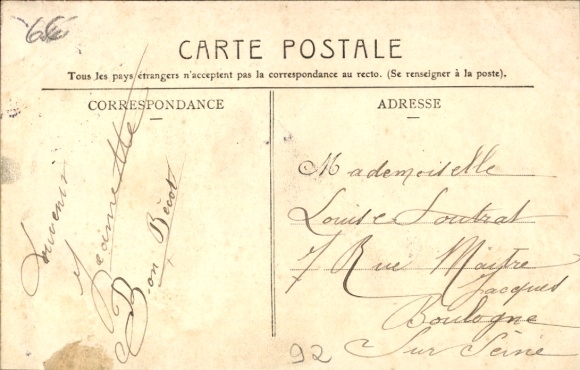 CARTE POSTALE
Tous les pays étrangers n'acceptent pas la correspondance au recto. (Se renseigner à la poste).
CORRESPONDANCE
Souvenir
Jeannette
Bon Bécot
ADRESSE
Mademoiselle
Louise Loutrat
7 Rue Maitre
Jacques
Boulogne
Sur Seine
92